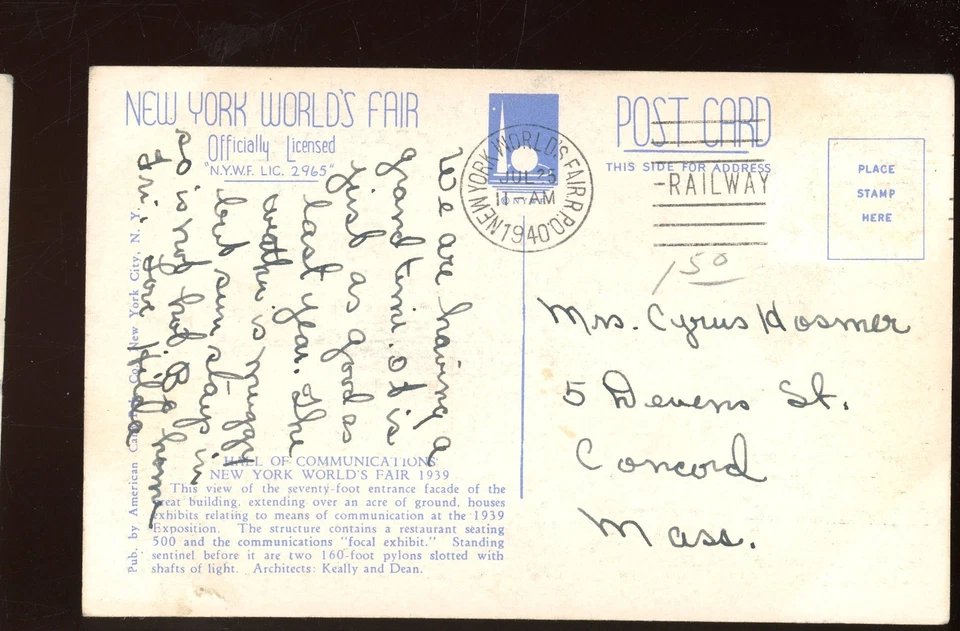 NEW YORK WORLD'S FAIR
Officially Licensed
"N.Y.W.F. LIC. 2965"
We are having a
grand time. It is
just as good as
last year. The
weather is muggy
but sun stays in
so is not hot. Be home
Fri. Love Hilda
HALL OF COMMUNICATIONS
NEW YORK WORLD'S FAIR 1939
This view of the seventy-foot entrance facade of the
great building, extending over an acre of ground, houses
exhibits relating to means of communication at the 1939
Exposition. The structure contains a restaurant seating
500 and the communications "focal exhibit." Standing
sentinel before it are two 160-foot pylons slotted with
shafts of light. Architects: Keally and Dean.
Pub. by American Co., New York City, N. Y.
© NYWF
NEW YORK WORLD'S FAIR P.O.
JUL 25
11 AM
1940
POST CARD
THIS SIDE FOR ADDRESS
RAILWAY
PLACE
STAMP
HERE
150
Mrs. Cyrus Hosmer
5 Devens St.
Concord
Mass.